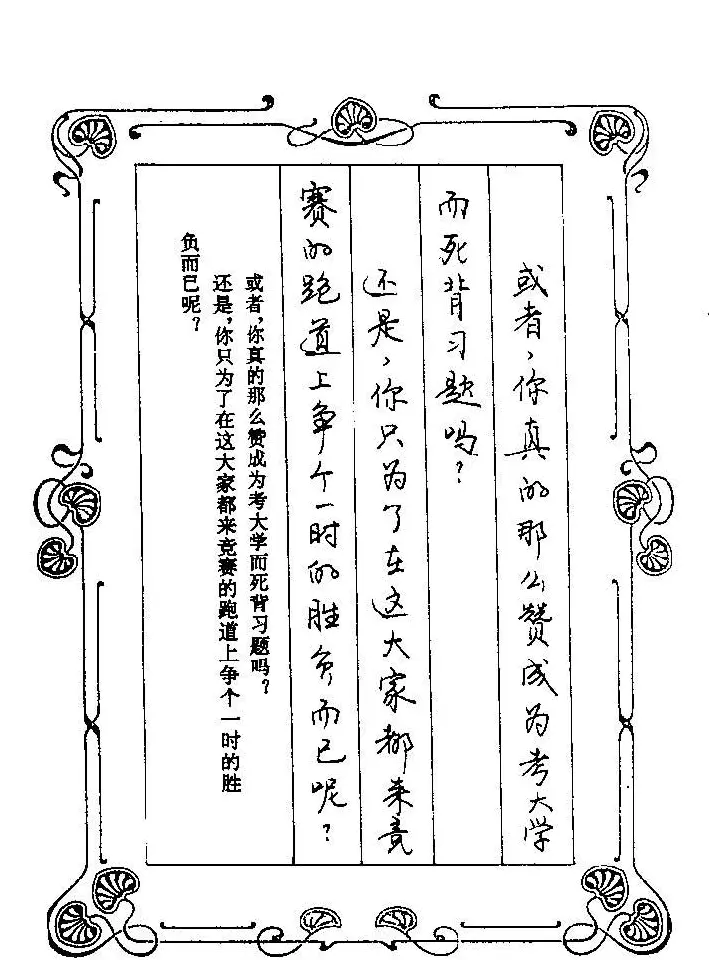 或者，你真的那么赞成为考大学
而死背习题吗？
还是，你只为了在这大家都来竞
赛的跑道上争个一时的胜负而已呢？
或者，你真的那么赞成为考大学而死背习题吗？
还是，你只为了在这大家都来竞赛的跑道上争个一时的胜
负而已呢？